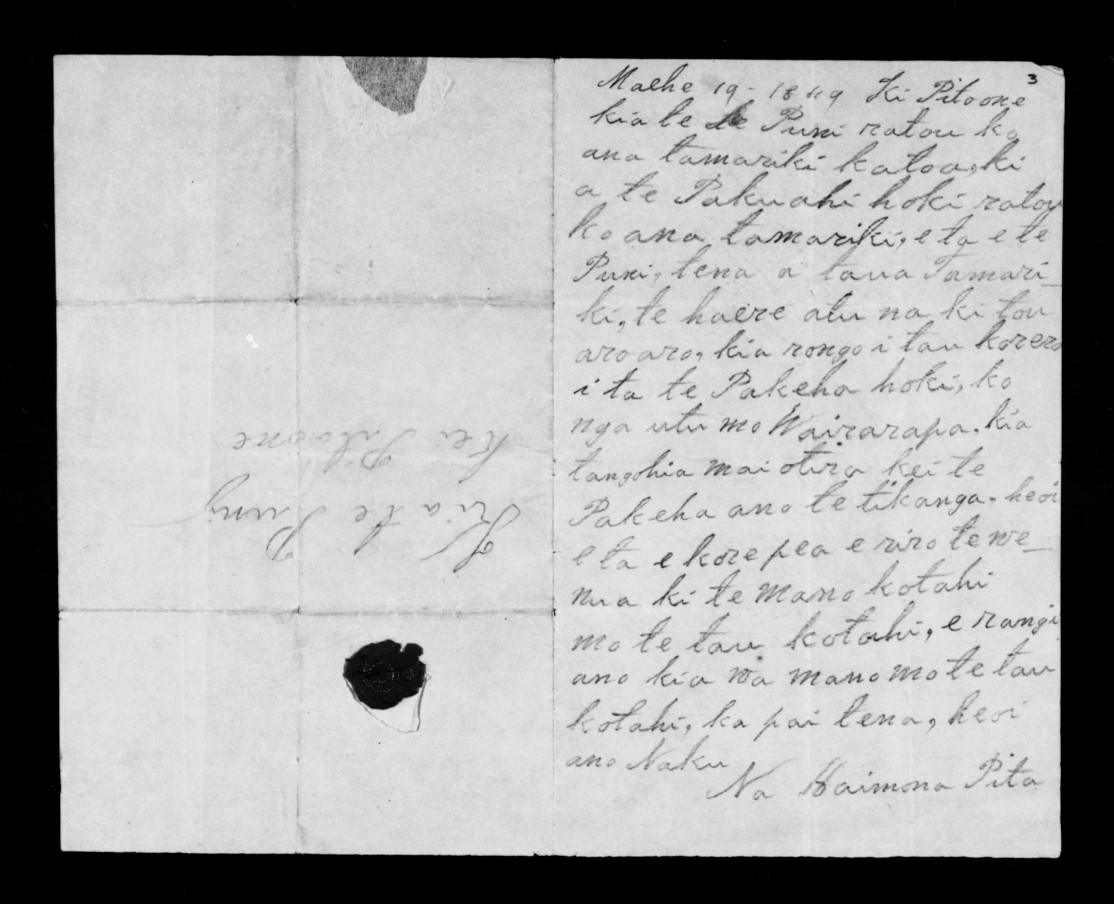 3
Maehe 19 - 1849 Ki Pitoone
kia te Puni ratou ko
ana tamariki katoa, ki
a te Pakuahi hoki ratou
ko ana tamariki, e ta e te
Puni, tena a taua Tamari_
ki, te haere atu na ki tou
aroaro, kia rongo i tau korero
i ta te Pakeha hoki, ko
nga utu mo Wairarapa. kia
tangohia mai otira kei te
Pakeha ano te tikanga. heoi
e ta e kore pea e riro te we_
nua ki te mano kotahi
mo te tau kotahi, e rangi
ano kia wa mano mo te tau
kotahi, ka pai tena, heoi
ano Naku
Na Haimona Pita
Kia te Puni
Kei Pitoone